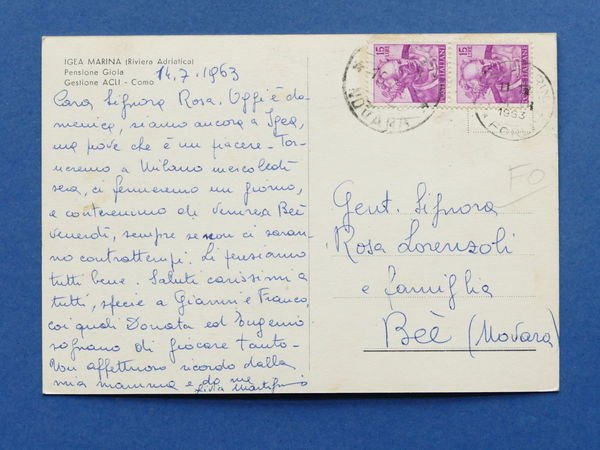 IGEA MARINA (Riviera Adriatica)
Pensione Gioia
Gestione ACLI - Como
14.7.1963
Cara Signora Rosa. Oggi è do-
menica, siamo ancora a Igea,
ma piove che è un piacere - Tor-
neremo a Milano mercoledì
sera, ci fermeremo un giorno,
e conteremmo di venire a Beè
Venerdì, sempre se non ci saran-
no contrattempi. Li pensiamo
tutti bene. Saluti carissimi a
tutti, specie a Gianni e Franco,
coi quali Donata ed Eugenio
sognano di giocare tanto -
Un affettuoso ricordo dalla
mia mamma e da me
Livia
15 LIRE
POSTE ITALIANE
15 LIRE
POSTE ITALIANE
NOVARA
1963
FO
Gent. Signora
Rosa Lorenzoli
e famiglia
Beè (Novara)